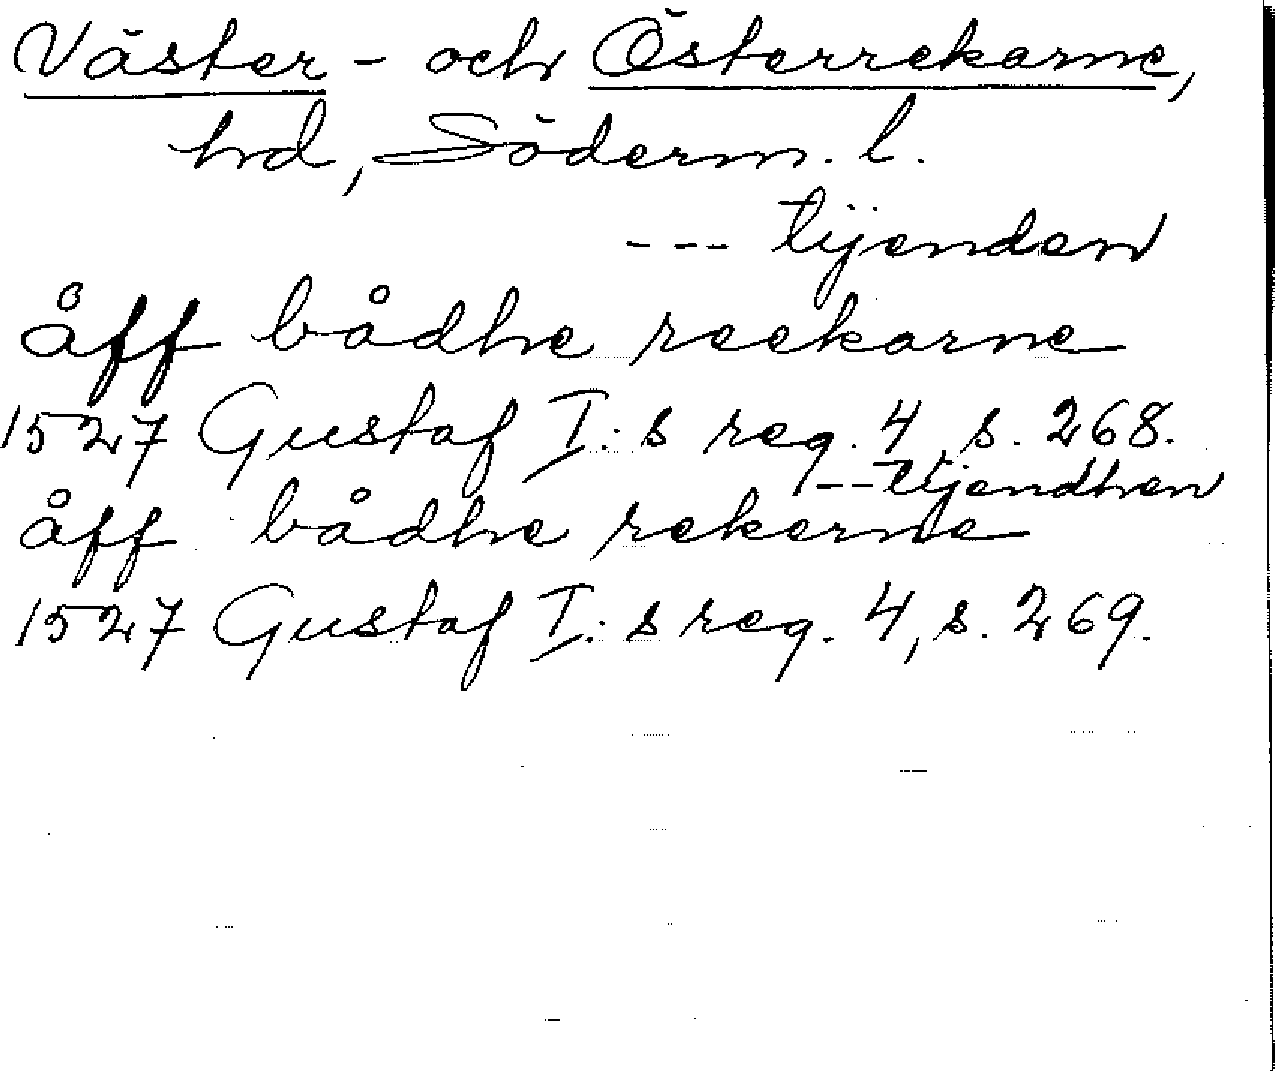 Väster- och Österrekarne,
hd, Söderm. l.
--- tijenden
åff bådhe reekarne
1527 Gustaf I:s reg. 4, s. 268.
--- tijendhen
åff bådhe rekerne
1527 Gustaf I:s reg. 4, s. 269.